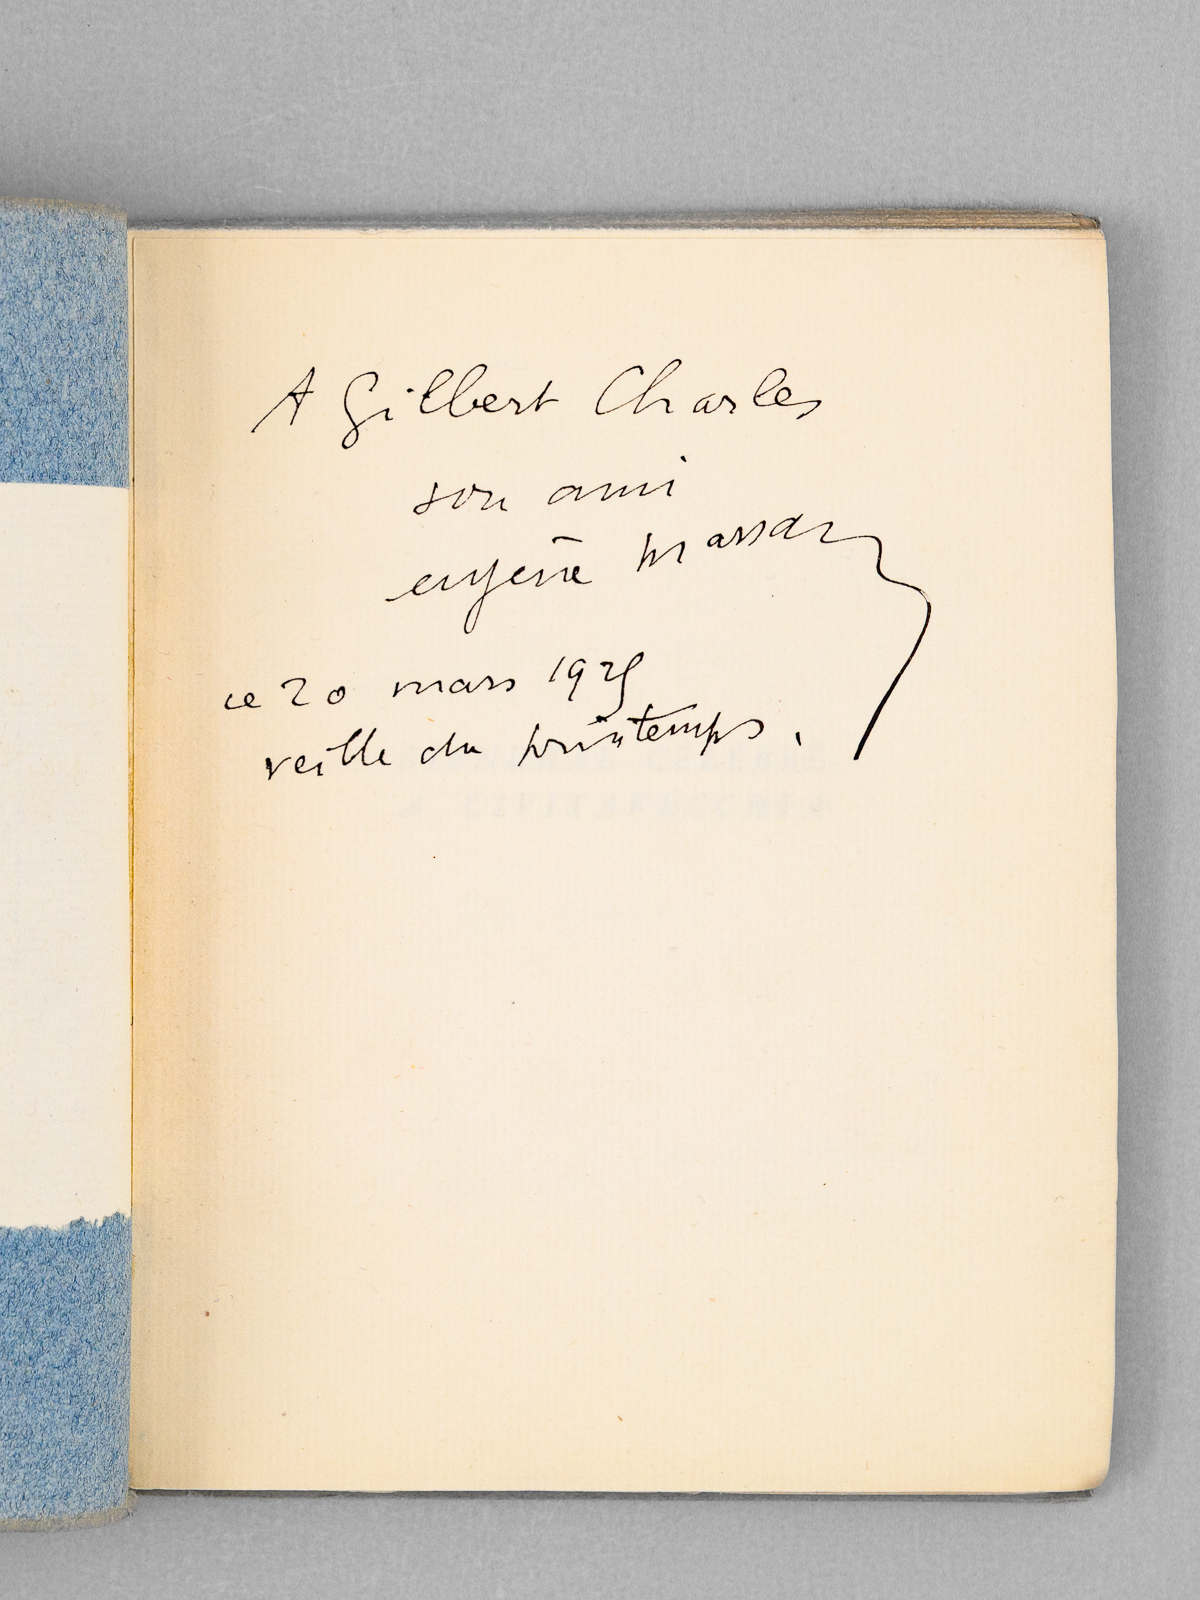 A Gilbert Charles
son ami
eugène Marsan
ce 20 mars 1925
veille du printemps.